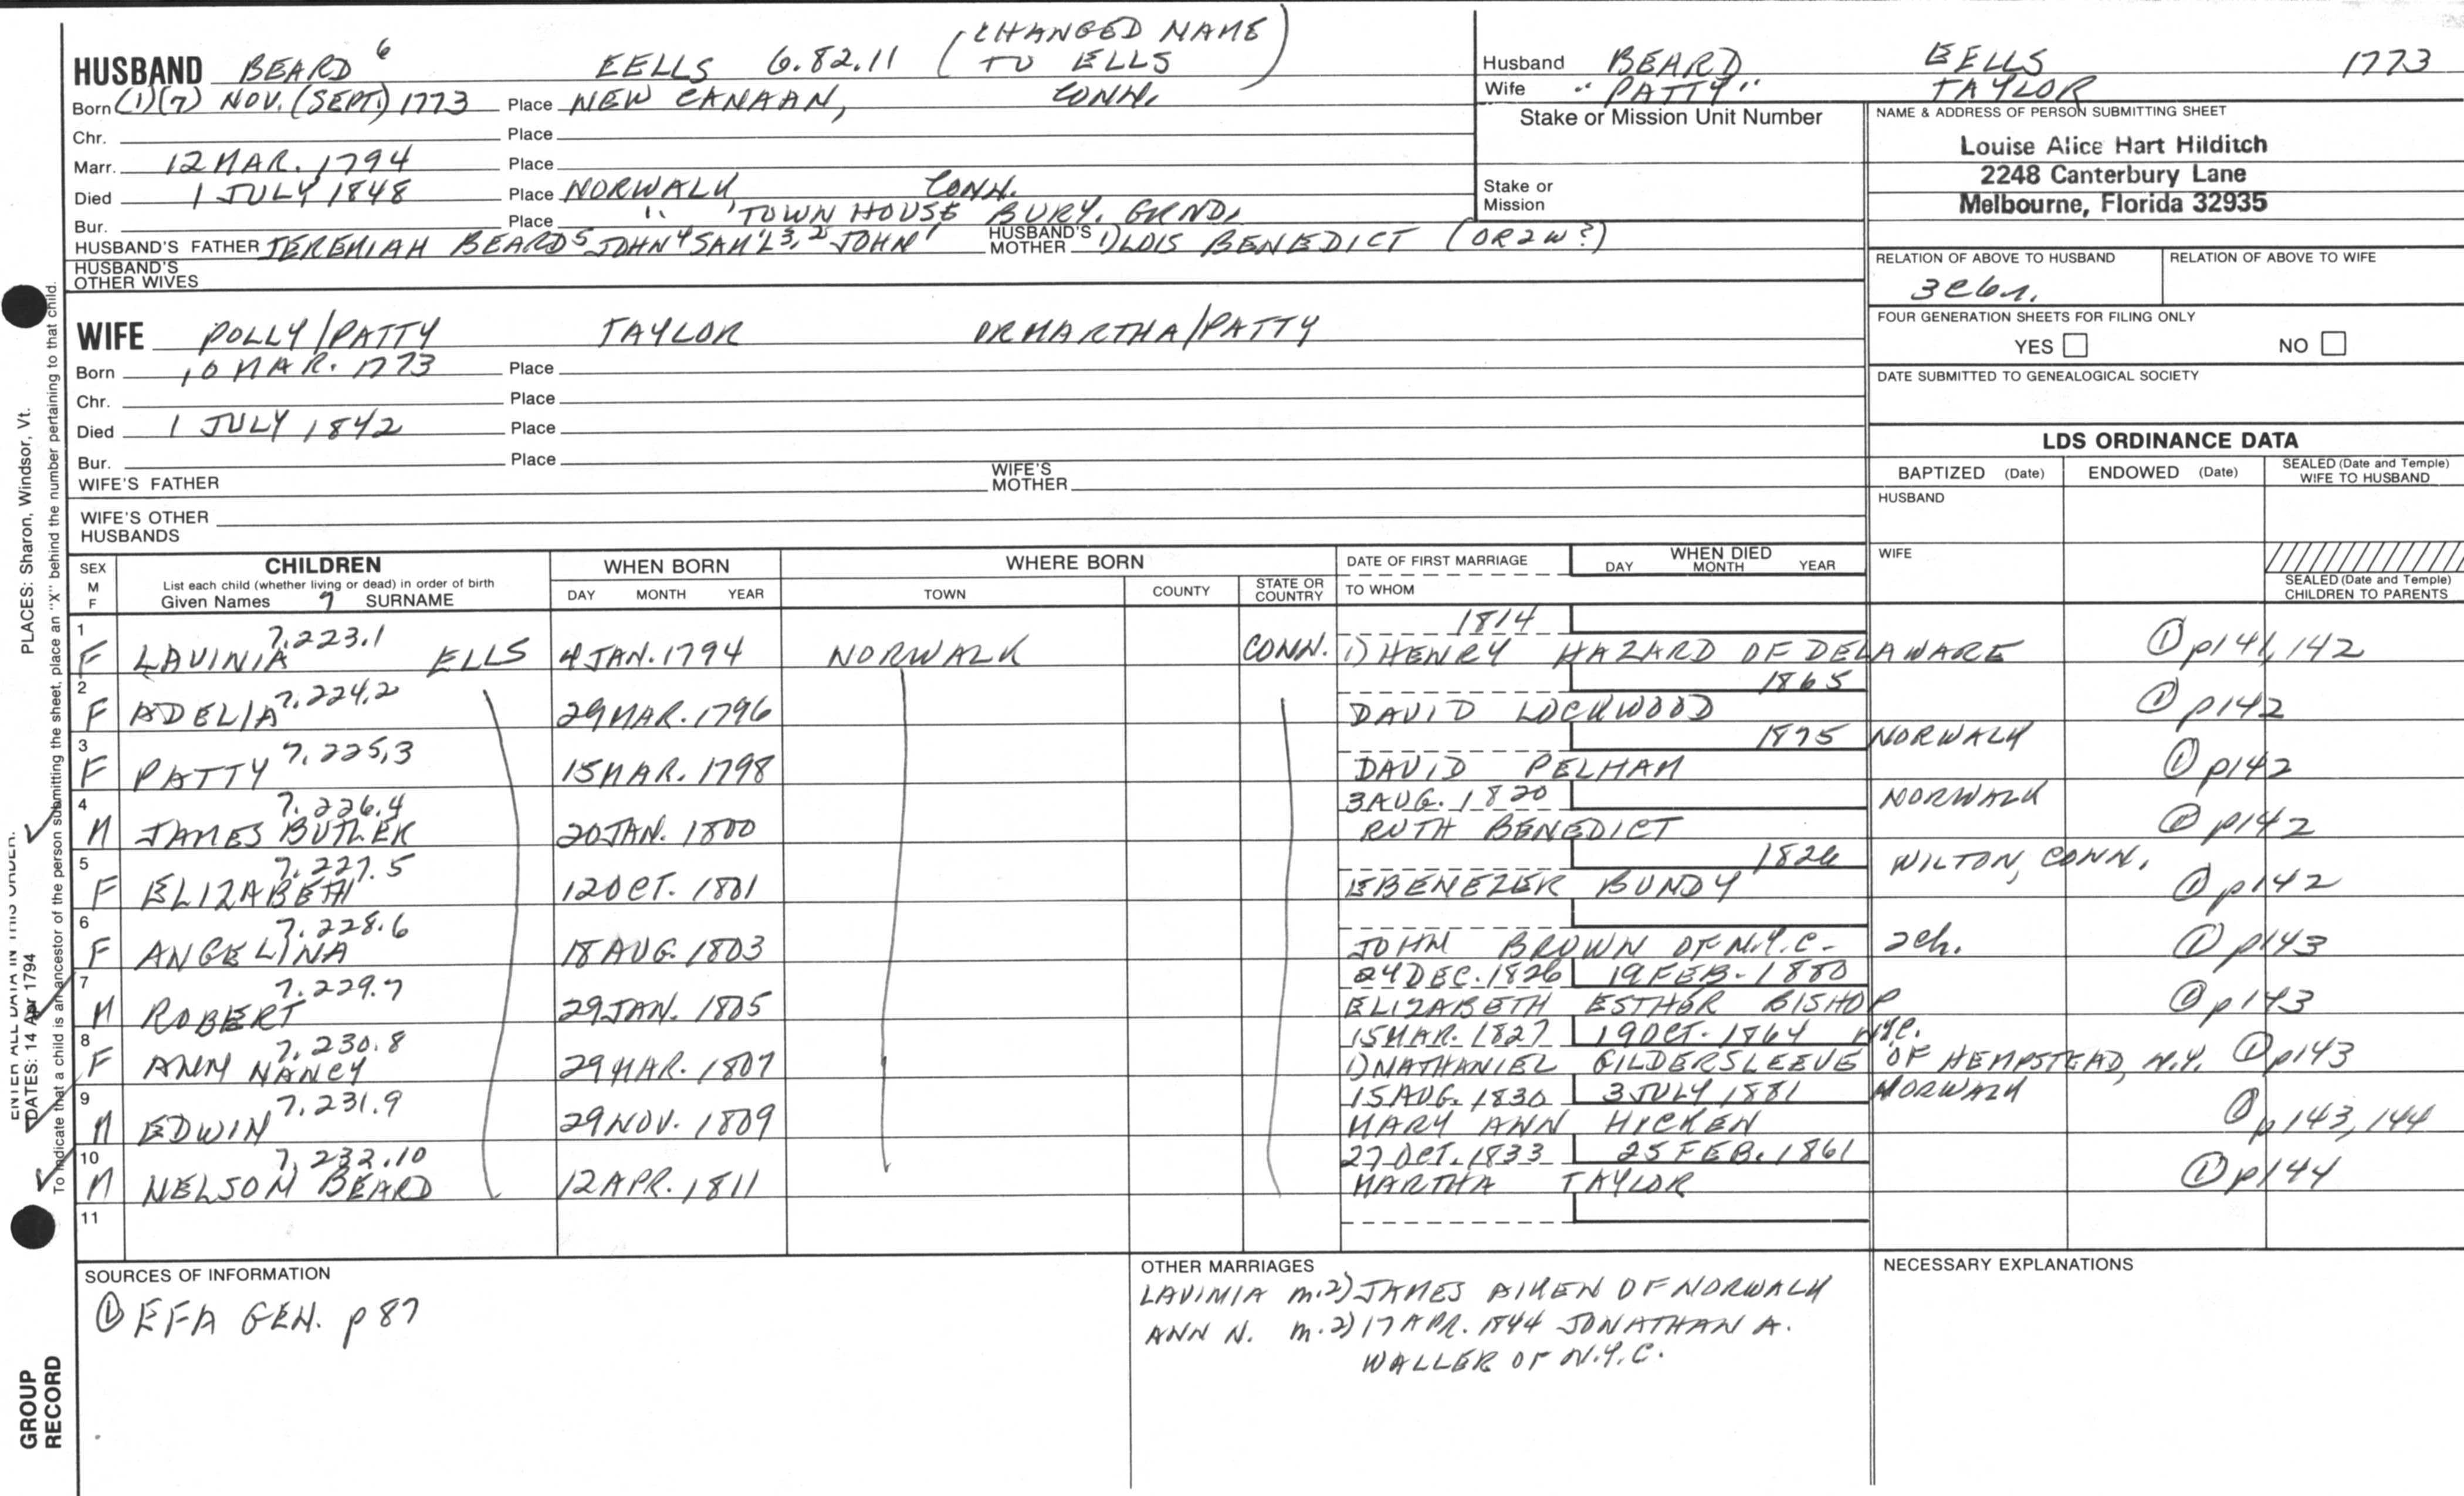 HUSBAND BEARD 6 EELLS 6.82.11 (CHANGED NAME TO ELLS)
Born (1)(7) NOV. (SEPT.) 1773 Place NEW CANAAN, CONN.
Chr. Place
Marr. 12 MAR. 1794 Place
Died 1 JULY 1848 Place NORWALK, CONN.
Bur. Place " TOWN HOUSE BURY. GRND.
HUSBAND'S FATHER JEREMIAH BEARD 5 JOHN 4 SAM'L 3, 2 JOHN 1 HUSBAND'S MOTHER 1) LOIS BENEDICT (OR 2 W?)
HUSBAND'S OTHER WIVES
WIFE POLLY/PATTY TAYLOR OR MARTHA/PATTY
Born 10 MAR. 1773 Place
Chr. Place
Died 1 JULY 1842 Place
Bur. Place
WIFE'S FATHER WIFE'S MOTHER
WIFE'S OTHER HUSBANDS
Husband BEARD EELLS 1773
Wife "PATTY" TAYLOR
Stake or Mission Unit Number
Stake or Mission
NAME & ADDRESS OF PERSON SUBMITTING SHEET
Louise Alice Hart Hilditch
2248 Canterbury Lane
Melbourne, Florida 32935
RELATION OF ABOVE TO HUSBAND RELATION OF ABOVE TO WIFE
3c6r.
FOUR GENERATION SHEETS FOR FILING ONLY
YES NO
DATE SUBMITTED TO GENEALOGICAL SOCIETY
LDS ORDINANCE DATA
BAPTIZED (Date) ENDOWED (Date) SEALED (Date and Temple) WIFE TO HUSBAND
HUSBAND
WIFE
SEALED (Date and Temple) CHILDREN TO PARENTS
SEX M F
CHILDREN
List each child (whether living or dead) in order of birth
Given Names 7 SURNAME
WHEN BORN
DAY MONTH YEAR
WHERE BORN
TOWN COUNTY STATE OR COUNTRY
DATE OF FIRST MARRIAGE
TO WHOM
WHEN DIED
DAY MONTH YEAR
1 7.223.1 1814
F LAVINIA ELLS 4 JAN. 1794 NORWALK CONN. 1) HENRY HAZARD OF DELAWARE ① p141, 142
2 7.224.2 1865
F ADELIA 29 MAR. 1796 DAVID LOCKWOOD ① p142
3 7.225.3 1875 NORWALK
F PATTY 15 MAR. 1798 DAVID PELHAM ① p142
4 7.226.4 3 AUG. 1820 NORWALK
M JAMES BUTLER 20 JAN. 1800 RUTH BENEDICT ① p142
5 7.227.5 1826 WILTON, CONN.
F ELIZABETH 12 OCT. 1801 EBENEZER BUNDY ① p142
6 7.228.6
F ANGELINA 18 AUG. 1803 JOHN BROWN OF N.Y.C. 2ch. ① p143
7 7.229.7 24 DEC. 1826 19 FEB. 1880
M ROBERT 29 JAN. 1805 ELIZABETH ESTHER BISHOP ① p143
8 7.230.8 15 MAR. 1827 19 OCT. 1864 N.Y.C.
F ANN NANCY 29 MAR. 1807 1) NATHANIEL GILDERSLEEVE OF HEMPSTEAD, N.Y. ① p143
9 7.231.9 15 AUG. 1830 3 JULY 1881 NORWALK
M EDWIN 29 NOV. 1809 MARY ANN HICKEN ① p143, 144
10 7.232.10 27 OCT. 1833 25 FEB. 1861
M NELSON BEARD 12 APR. 1811 MARTHA TAYLOR ① p144
11
SOURCES OF INFORMATION
① EFA GEN. p 87
OTHER MARRIAGES
LAVINIA m.2) JAMES AIKEN OF NORWALK
ANN N. m.2) 17 APR. 1844 JONATHAN A.
WALLER OF N.Y.C.
NECESSARY EXPLANATIONS
PLACES: Sharon, Windsor, Vt.
ENTER ALL DATA IN THIS ORDER:
DATES: 14 Apr 1794
To indicate that a child is an ancestor of the person submitting the sheet, place an "X" behind the number pertaining to that child.
GROUP RECORD